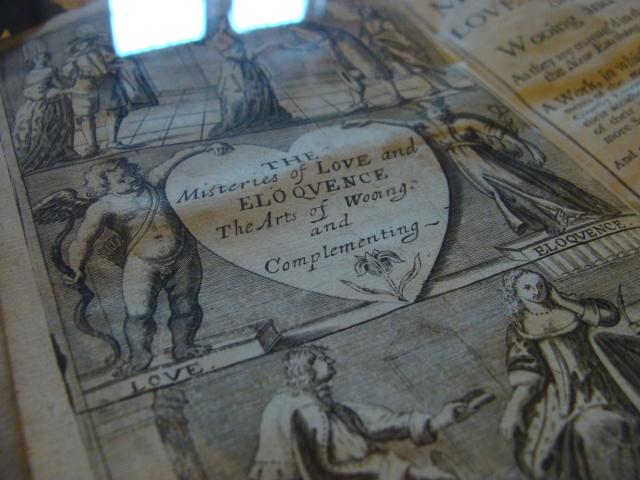 THE
Misteries of LOVE and
ELOQVENCE
The Arts of Wooing.
and
Complementing
LOVE.
ELOQVENCE.
LOVE
Wooing and
As they are manag'd in
the New Exchange
A Work, in which
of the
more
And